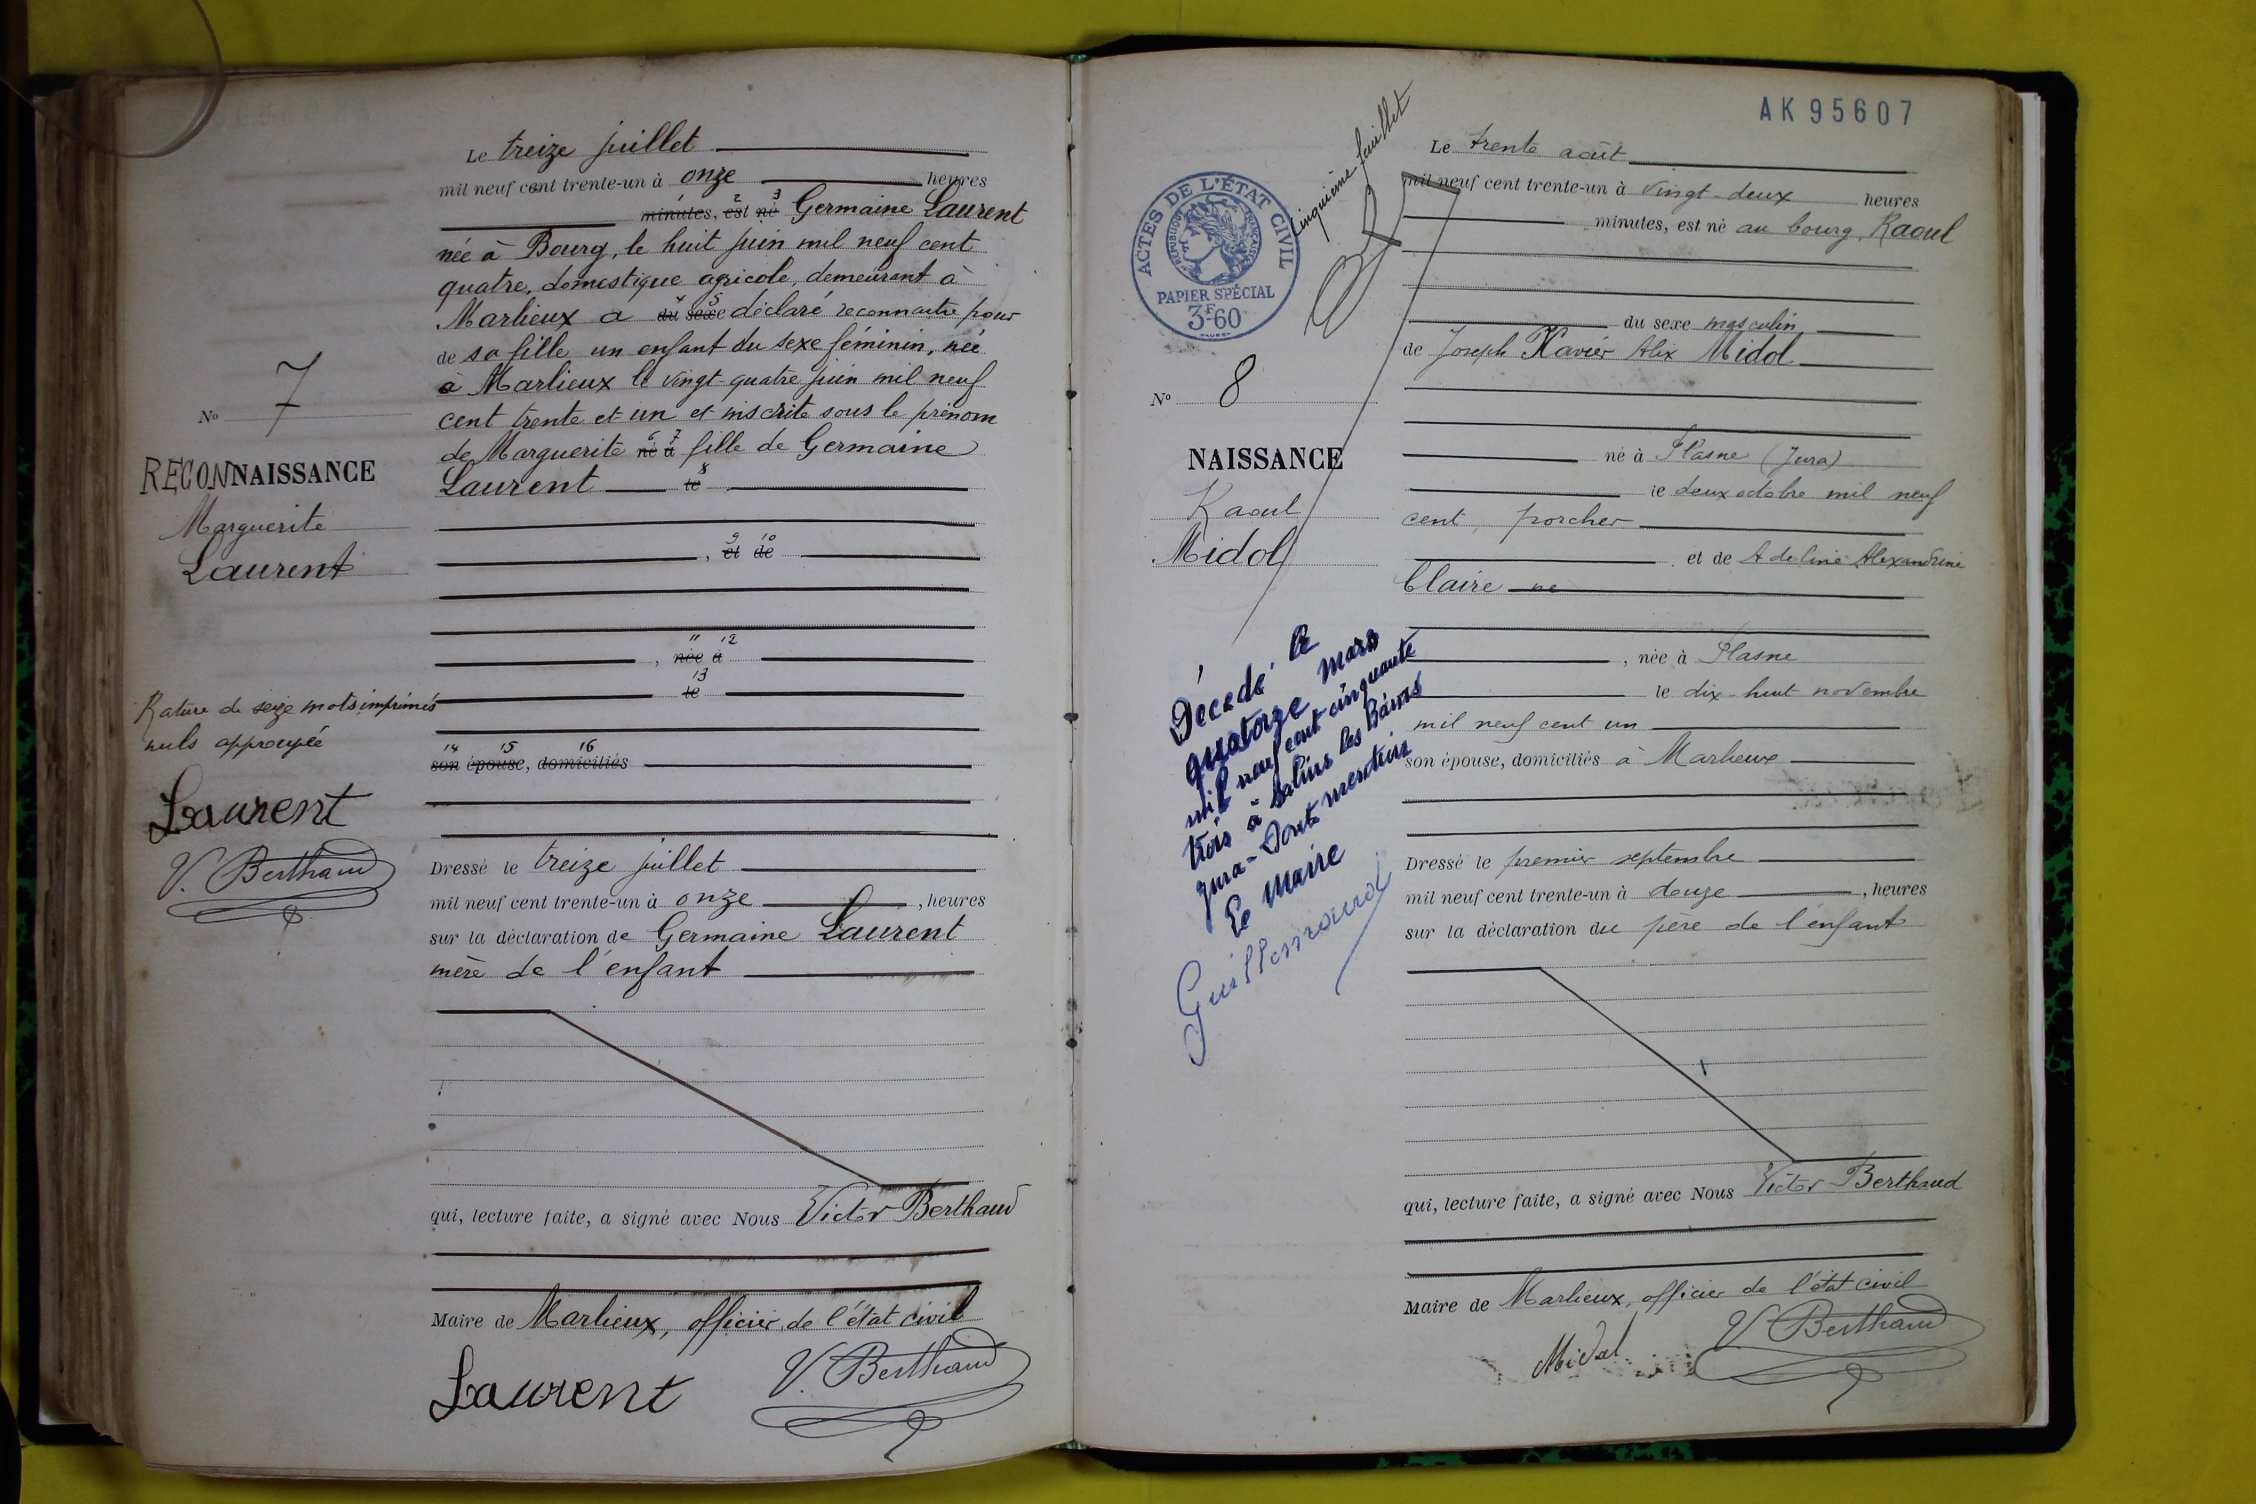 Le treize juillet
mil neuf cent trente-un à onze heures
minutes, est né Germaine Laurent
1 2 3
née à Bourg, le huit juin mil neuf cent
quatre, domestique agricole, demeurant à
Marlieux a du sexe déclaré reconnaitre pour
4 5
de sa fille, un enfant du sexe féminin, née
à Marlieux le vingt-quatre juin mil neuf
cent trente et un et inscrite sous le prénom
de Marguerite né à fille de Germaine
6 7
Laurent le
8
, et de
9 10
, née à
11 12
le
13
son épouse, domiciliés
14 15 16
Dressé le treize juillet
mil neuf cent trente-un à onze , heures
sur la déclaration de Germaine Laurent
mère de l'enfant
qui, lecture faite, a signé avec Nous Victor Berthaud
Maire de Marlieux, officier de l'état civil
Laurent V. Berthaud
No 7
RECONNAISSANCE
Marguerite
Laurent
Rature de seize mots imprimés
nuls approuvée
Laurent
V. Berthaud
AK 95607
cinquième feuillet
ACTES DE L'ÉTAT CIVIL
RÉPUBLIQUE FRANÇAISE
PAPIER SPÉCIAL
3F60
No 8
NAISSANCE
Raoul
Midol
Décédé le
quatorze mars
mil neuf cent cinquante
trois à Salins les Bains
Jura - Dont mention
Le Maire
Le trente août
mil neuf cent trente-un à vingt-deux heures
minutes, est né au bourg, Raoul
du sexe masculin
de Joseph Xavier Alix Midol
né à Plasne (Jura)
le deux octobre mil neuf
cent, porcher
et de Adeline Alexandrine
Claire ne
, née à Plasne
le dix-huit novembre
mil neuf cent un
son épouse, domiciliés à Marlieux
Dressé le premier septembre
mil neuf cent trente-un à douze , heures
sur la déclaration du père de l'enfant
qui, lecture faite, a signé avec Nous Victor Berthaud
Maire de Marlieux, officier de l'état civil
Midol V. Berthaud